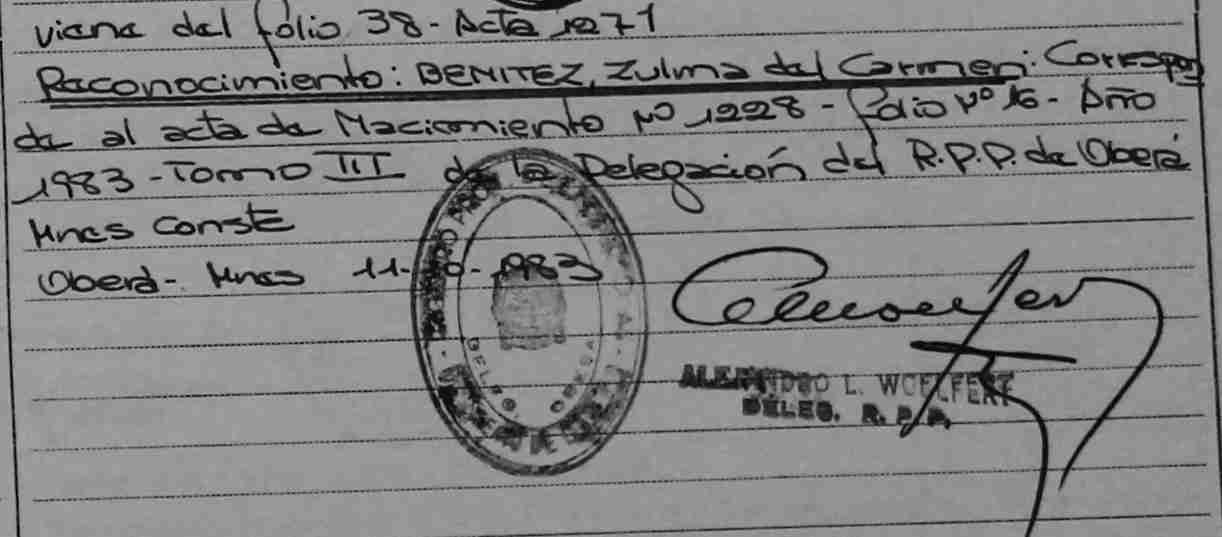 viene del folio 38 - Acta 1271
Reconocimiento: BENITEZ, Zulma del Carmen: Correspon
de al acta de Nacimiento Nº 1228 - folio Nº 16 - Año
1983 - Tomo III de la Delegación del R.P.P. de Oberá
Mnes Conste
Oberá - Mnes 11- -1983
L. WOELFERT
DELEG. R. P. P.